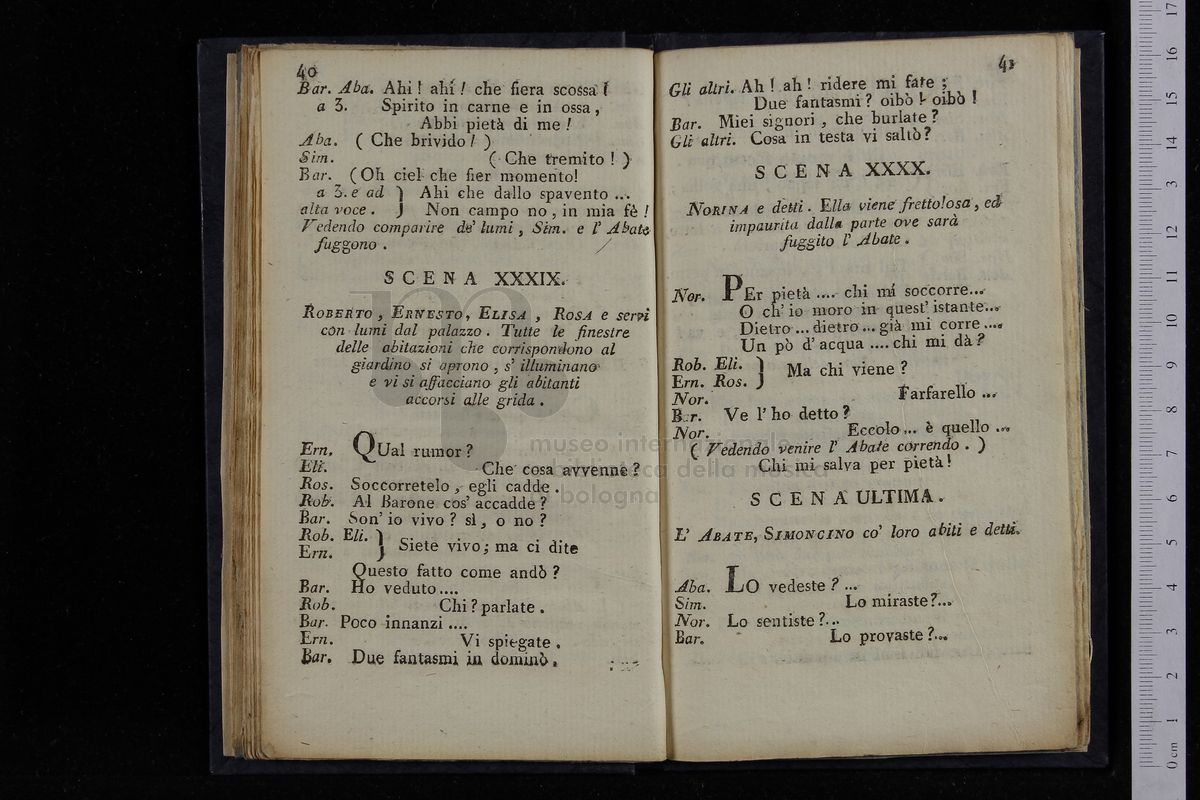 40
Bar. Aba. Ahi! ahi! che fiera scossa!
a 3. Spirito in carne e in ossa,
Abbi pietà di me!
Aba. ( Che brivido! )
Sim. ( Che tremito! )
Bar. ( Oh ciel che fier momento!
a 3. e ad } Ahi che dallo spavento ...
alta voce. } Non campo no, in mia fè!
Vedendo comparire de' lumi, Sim. e l' Abate
fuggono.
SCENA XXXIX.
ROBERTO, ERNESTO, ELISA, ROSA e servi
con lumi dal palazzo. Tutte le finestre
delle abitazioni che corrispondono al
giardino si aprono, s' illuminano
e vi si affacciano gli abitanti
accorsi alle grida.
Ern. QUal rumor?
Eli. Che cosa avvenne?
Ros. Soccorretelo, egli cadde.
Rob. Al Barone cos' accadde?
Bar. Son' io vivo? sì, o no?
Rob. Eli. }
Ern. } Siete vivo; ma ci dite
Questo fatto come andò?
Bar. Ho veduto....
Rob. Chi? parlate.
Bar. Poco innanzi ....
Ern. Vi spiegate.
Bar. Due fantasmi in dominò.
41
Gli altri. Ah! ah! ridere mi fate;
Due fantasmi? oibò! oibò!
Bar. Miei signori, che burlate?
Gli altri. Cosa in testa vi saltò?
SCENA XXXX.
NORINA e detti. Ella viene frettolosa, ed
impaurita dalla parte ove sarà
fuggito l' Abate.
Nor. PEr pietà .... chi mi soccorre...
O ch' io moro in quest' istante...
Dietro ... dietro ... già mi corre ....
Un pò d' acqua .... chi mi dà?
Rob. Eli. } Ma chi viene?
Ern. Ros. }
Nor. Farfarello ...
Bar. Ve l' ho detto?
Nor. Eccolo ... è quello ...
( Vedendo venire l' Abate correndo. )
Chi mi salva per pietà!
SCENA ULTIMA.
L' ABATE, SIMONCINO co' loro abiti e detti.
Aba. LO vedeste? ...
Sim. Lo miraste?...
Nor. Lo sentiste?...
Bar. Lo provaste?...
museo internazionale
biblioteca della musica
bologna
0 cm 1 2 3 4 5 6 7 8 9 10 11 12 13 14 15 16 17